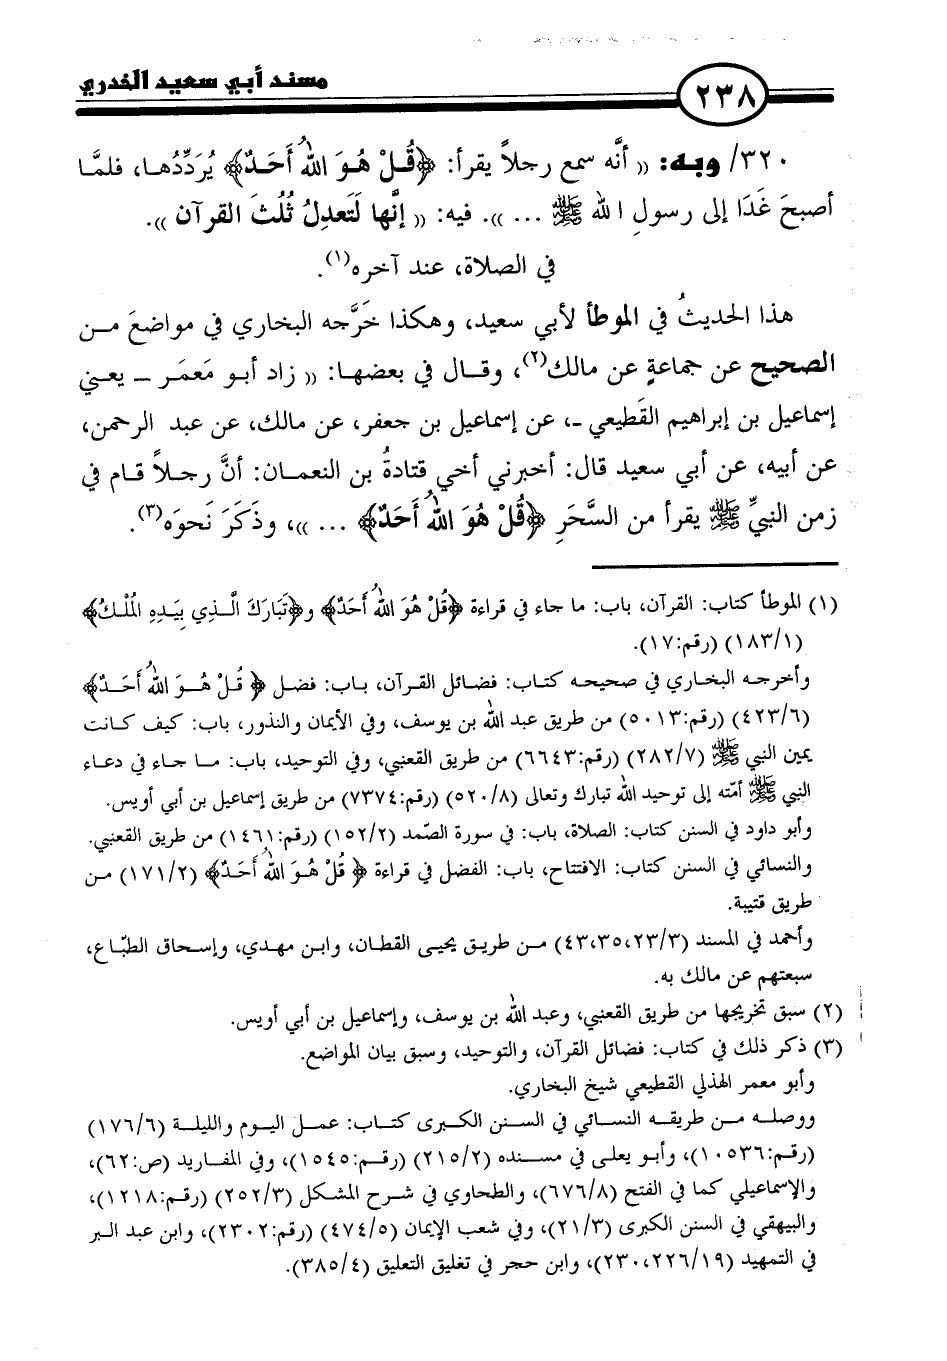 ٢٣٨ مسند أبي سعيد الخدري
٣٢٠/ وبه: (( أنَّه سمع رجلاً يقرأ: ﴿قُلْ هُوَ اللهُ أَحَدٌ﴾ يُرَدِّدُها، فلمَّا
أصبحَ غَدَا إلى رسولِ الله ﷺ ... )). فيه: (( إنَّها لَتَعدِلُ ثُلُثَ القرآن )).
في الصلاة، عند آخره(١).
هذا الحديثُ في الموطأ لأبي سعيد، وهكذا خَرَّجه البخاري في مواضعَ من
الصحيح عن جماعةٍ عن مالك(٢)، وقال في بعضها: (( زاد أبو مَعمَر ــ يعني
إسماعيل بن إبراهيم القَطيعي ــ، عن إسماعيل بن جعفر، عن مالك، عن عبد الرحمن،
عن أبيه، عن أبي سعيد قال: أخبرني أخي قتادةُ بن النعمان: أنَّ رجلاً قام في
زمن النبيِّ ﷺ يقرأ من السَّحَرِ ﴿قُلْ هُوَ اللهُ أَحَدٌ﴾ ... ))، وذَكَرَ نَحوَه(٣).
(١) الموطأ كتاب: القرآن، باب: ما جاء في قراءة ﴿قُلْ هُوَ اللهُ أَحَدٌ﴾ و﴿تَبَارَكَ الَّذِي بِيَدِهِ المُلْكُ﴾
(١٨٣/١) (رقم:١٧).
وأخرجه البخاري في صحيحه كتاب: فضائل القرآن، باب: فضل ﴿ قُلْ هُوَ اللهُ أَحَدٌ﴾
(٤٢٣/٦) (رقم:٥٠١٣) من طريق عبد الله بن يوسف، وفي الأيمان والنذور، باب: كيف كانت
يمين النبي ﷺ (٢٨٢/٧) (رقم:٦٦٤٣) من طريق القعنبي، وفي التوحيد، باب: ما جاء في دعاء
النبي ﷺ أمّته إلى توحيد الله تبارك وتعالى (٥٢٠/٨) (رقم:٧٣٧٤) من طريق إسماعيل بن أبي أويس.
وأبو داود في السنن كتاب: الصلاة، باب: في سورة الصّمد (١٥٢/٢) (رقم:١٤٦١) من طريق القعنبي.
والنسائي في السنن كتاب: الافتتاح، باب: الفضل في قراءة ﴿ قُلْ هُوَ اللهُ أَحَدٌ﴾ (١٧١/٢) من
طريق قتيبة.
وأحمد في المسند (٢٣/٣،٣٥،٤٣) من طريق يحيى القطان، وابن مهدي، وإسحاق الطبّاع،
سبعتهم عن مالك به.
(٢) سبق تخريجها من طريق القعنبي، وعبد الله بن يوسف، وإسماعيل بن أبي أويس.
(٣) ذكر ذلك في كتاب: فضائل القرآن، والتوحيد، وسبق بيان المواضع.
وأبو معمر الهذلي القطيعي شيخ البخاري.
ووصله من طريقه النسائي في السنن الكبرى كتاب: عمل اليوم والليلة (١٧٦/٦)
(رقم:١٠٥٣٦)، وأبو يعلى في مسنده (٢١٥/٢) (رقم:١٥٤٥)، وفي المفاريد (ص:٦٢)،
والإسماعيلي كما في الفتح (٦٧٦/٨)، والطحاوي في شرح المشكل (٢٥٢/٣) (رقم:١٢١٨)،
والبيهقي في السنن الكبرى (٢١/٣)، وفي شعب الإيمان (٤٧٤/٥) (رقم:٢٣٠٢)، وابن عبد البر
في التمهيد (٢٢٦/١٩،٢٣٠)، وابن حجر في تغليق التعليق (٣٨٥/٤).